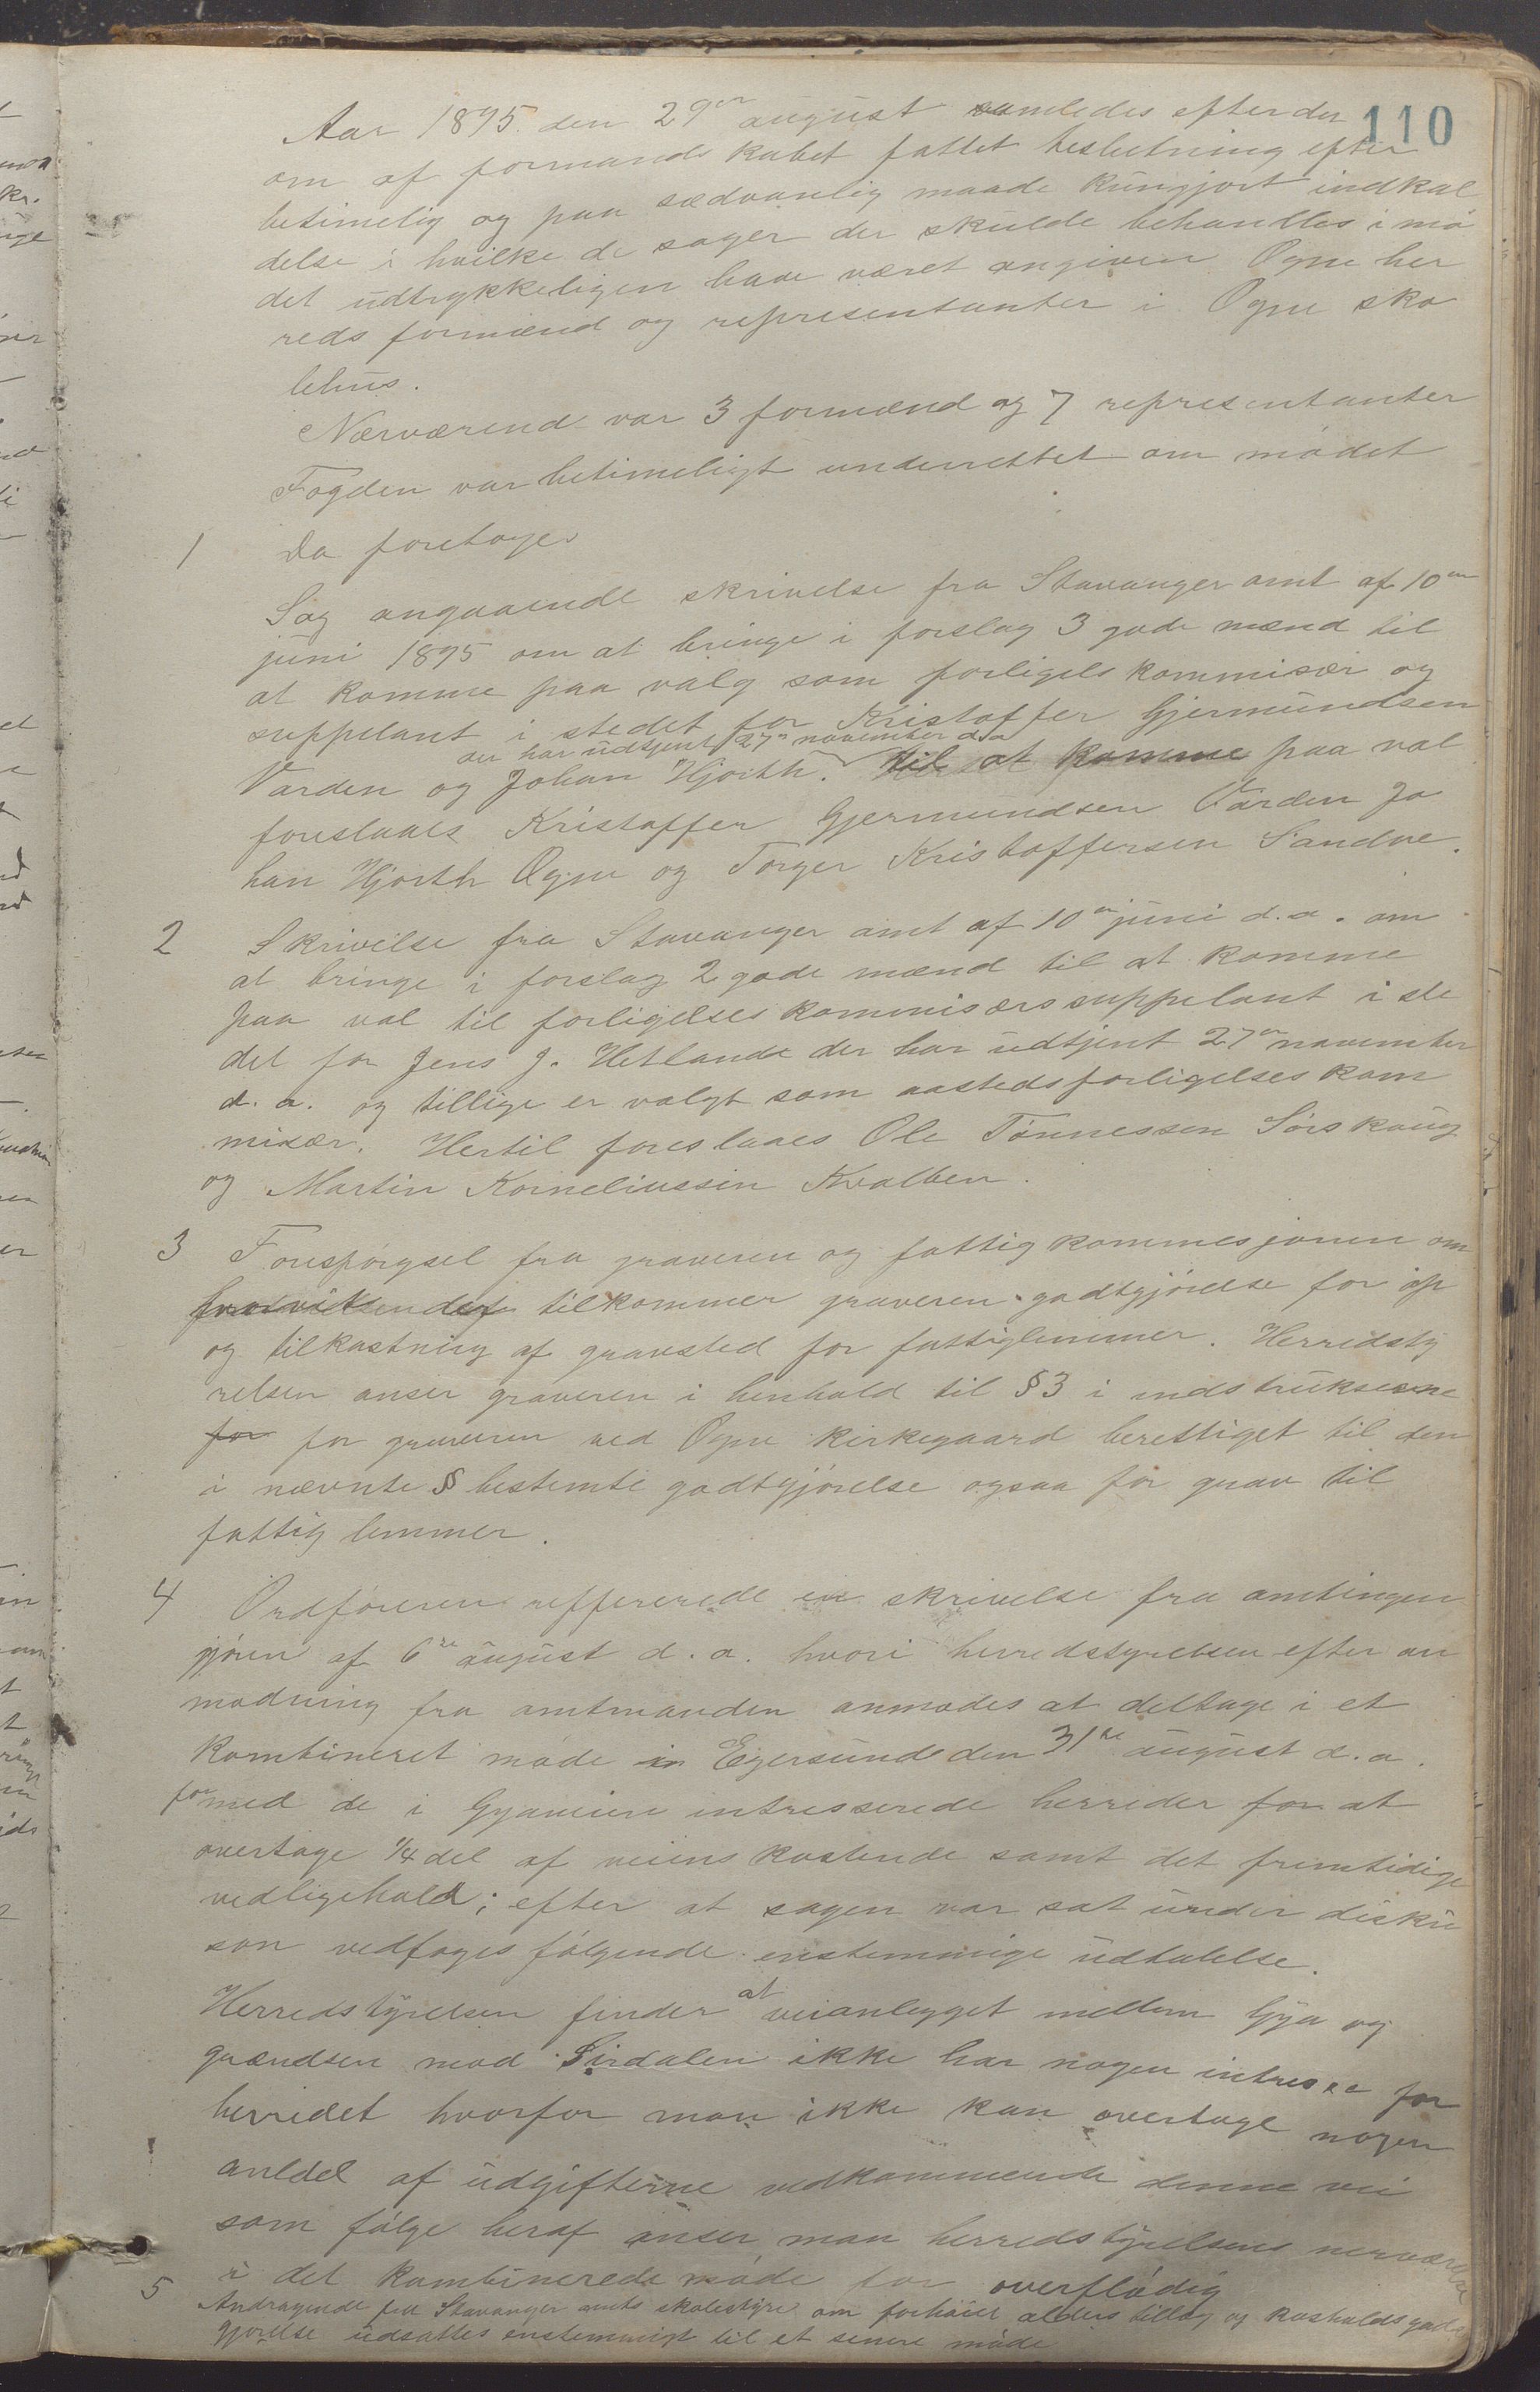 110
Aar 1895 den 29en august samledes efter der
om af formandskabet fattet beslutning efter
betimelig og paa sædvanlig maade kungjort indkal
delse i hvilke de sager der skulde behandles i mö
det udtrykkeligen have været angiven Ogne her
reds formænd og representanter i Ogne sko
lehus.
Nærværend var 3 formænd og 7 representanter
Fogden var betimeligt underrettet om mödet
1 Da foretoges
Sag angaaende skrivelse fra Stavanger amt af 10en
juni 1895 om at bringe i forslag 3 gode mænd til
at komme paa valg som forligels kommisær og
suppelant i stedet for Kristoffer Gjermundsen
der har udtjent 27n november d.a
Varden og Johan Hjorth. Til at komme paa val
foreslaaes Kristoffer Gjermundsen Varden Jo
han Hjorth Ogne og Torger Kristoffersen Sandve.
2 Skrivelse fra Stavanger amt af 10en juni d.a. om
at bringe i forslag 2 gode mænd til at komme
paa val til forligelseskommisærssuppelant i ste
det for Jens J. Hetlande der har udtjent 27en november
d.a. og tillige er valgt som aastedsforligelses kom
misær. Hertil foreslaaes Ole Tönnessen Sörskoug
og Martin Korneliussen Kvalben.
3 Forespörgsel fra graveren og fattigkommesjonen om
tilkommer graveren godtgjörelse for op
og tilkastning af gravsted for fattiglemmer. Herredsty
relsen anser graveren i henhold til § 3 i indstruksene
for for graveren ved Ogne kirkegaard berettiget til den
i nævnte § bestemte godtgjörelse ogsaa for grav til
fattig lemmer.
4 Ordföreren reffererede en skrivelse fra amtingen
jören af 6te august d.a. hvori herredstyrelsen efter an
modning fra amtmanden anmodes at deltage i et
kombineret möde in Egersund den 31te august d.a.
for med de i Gyaveien intresserede herreder for at
overtage 1/4 del af veiens kostende samt det fremtidige
vedligehold; efter at sagen var sat under disku
son vedtoges fölgende enstemmige udtalelse.
Herredstyrelsen finder at veianlegget mellem Gya og
grændsen mod Sirdalen ikke har nogen intresse for
herredet hvorfor man ikke kan overtage nogen
andel af udgifterne vedkommende denne vei
som fölge heraf anser man herredstyrelsens nerværelse
i det kombinerede möde for overflödig
5 Andragende fra Stavanger amts skolestyre om forhöiet alderstillæg og kostholdsgodt
gjörelse udsattes enstemmigt til et senere möde